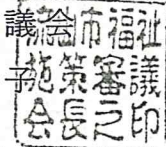 議会
子
市福祉
施策審議
会長之印